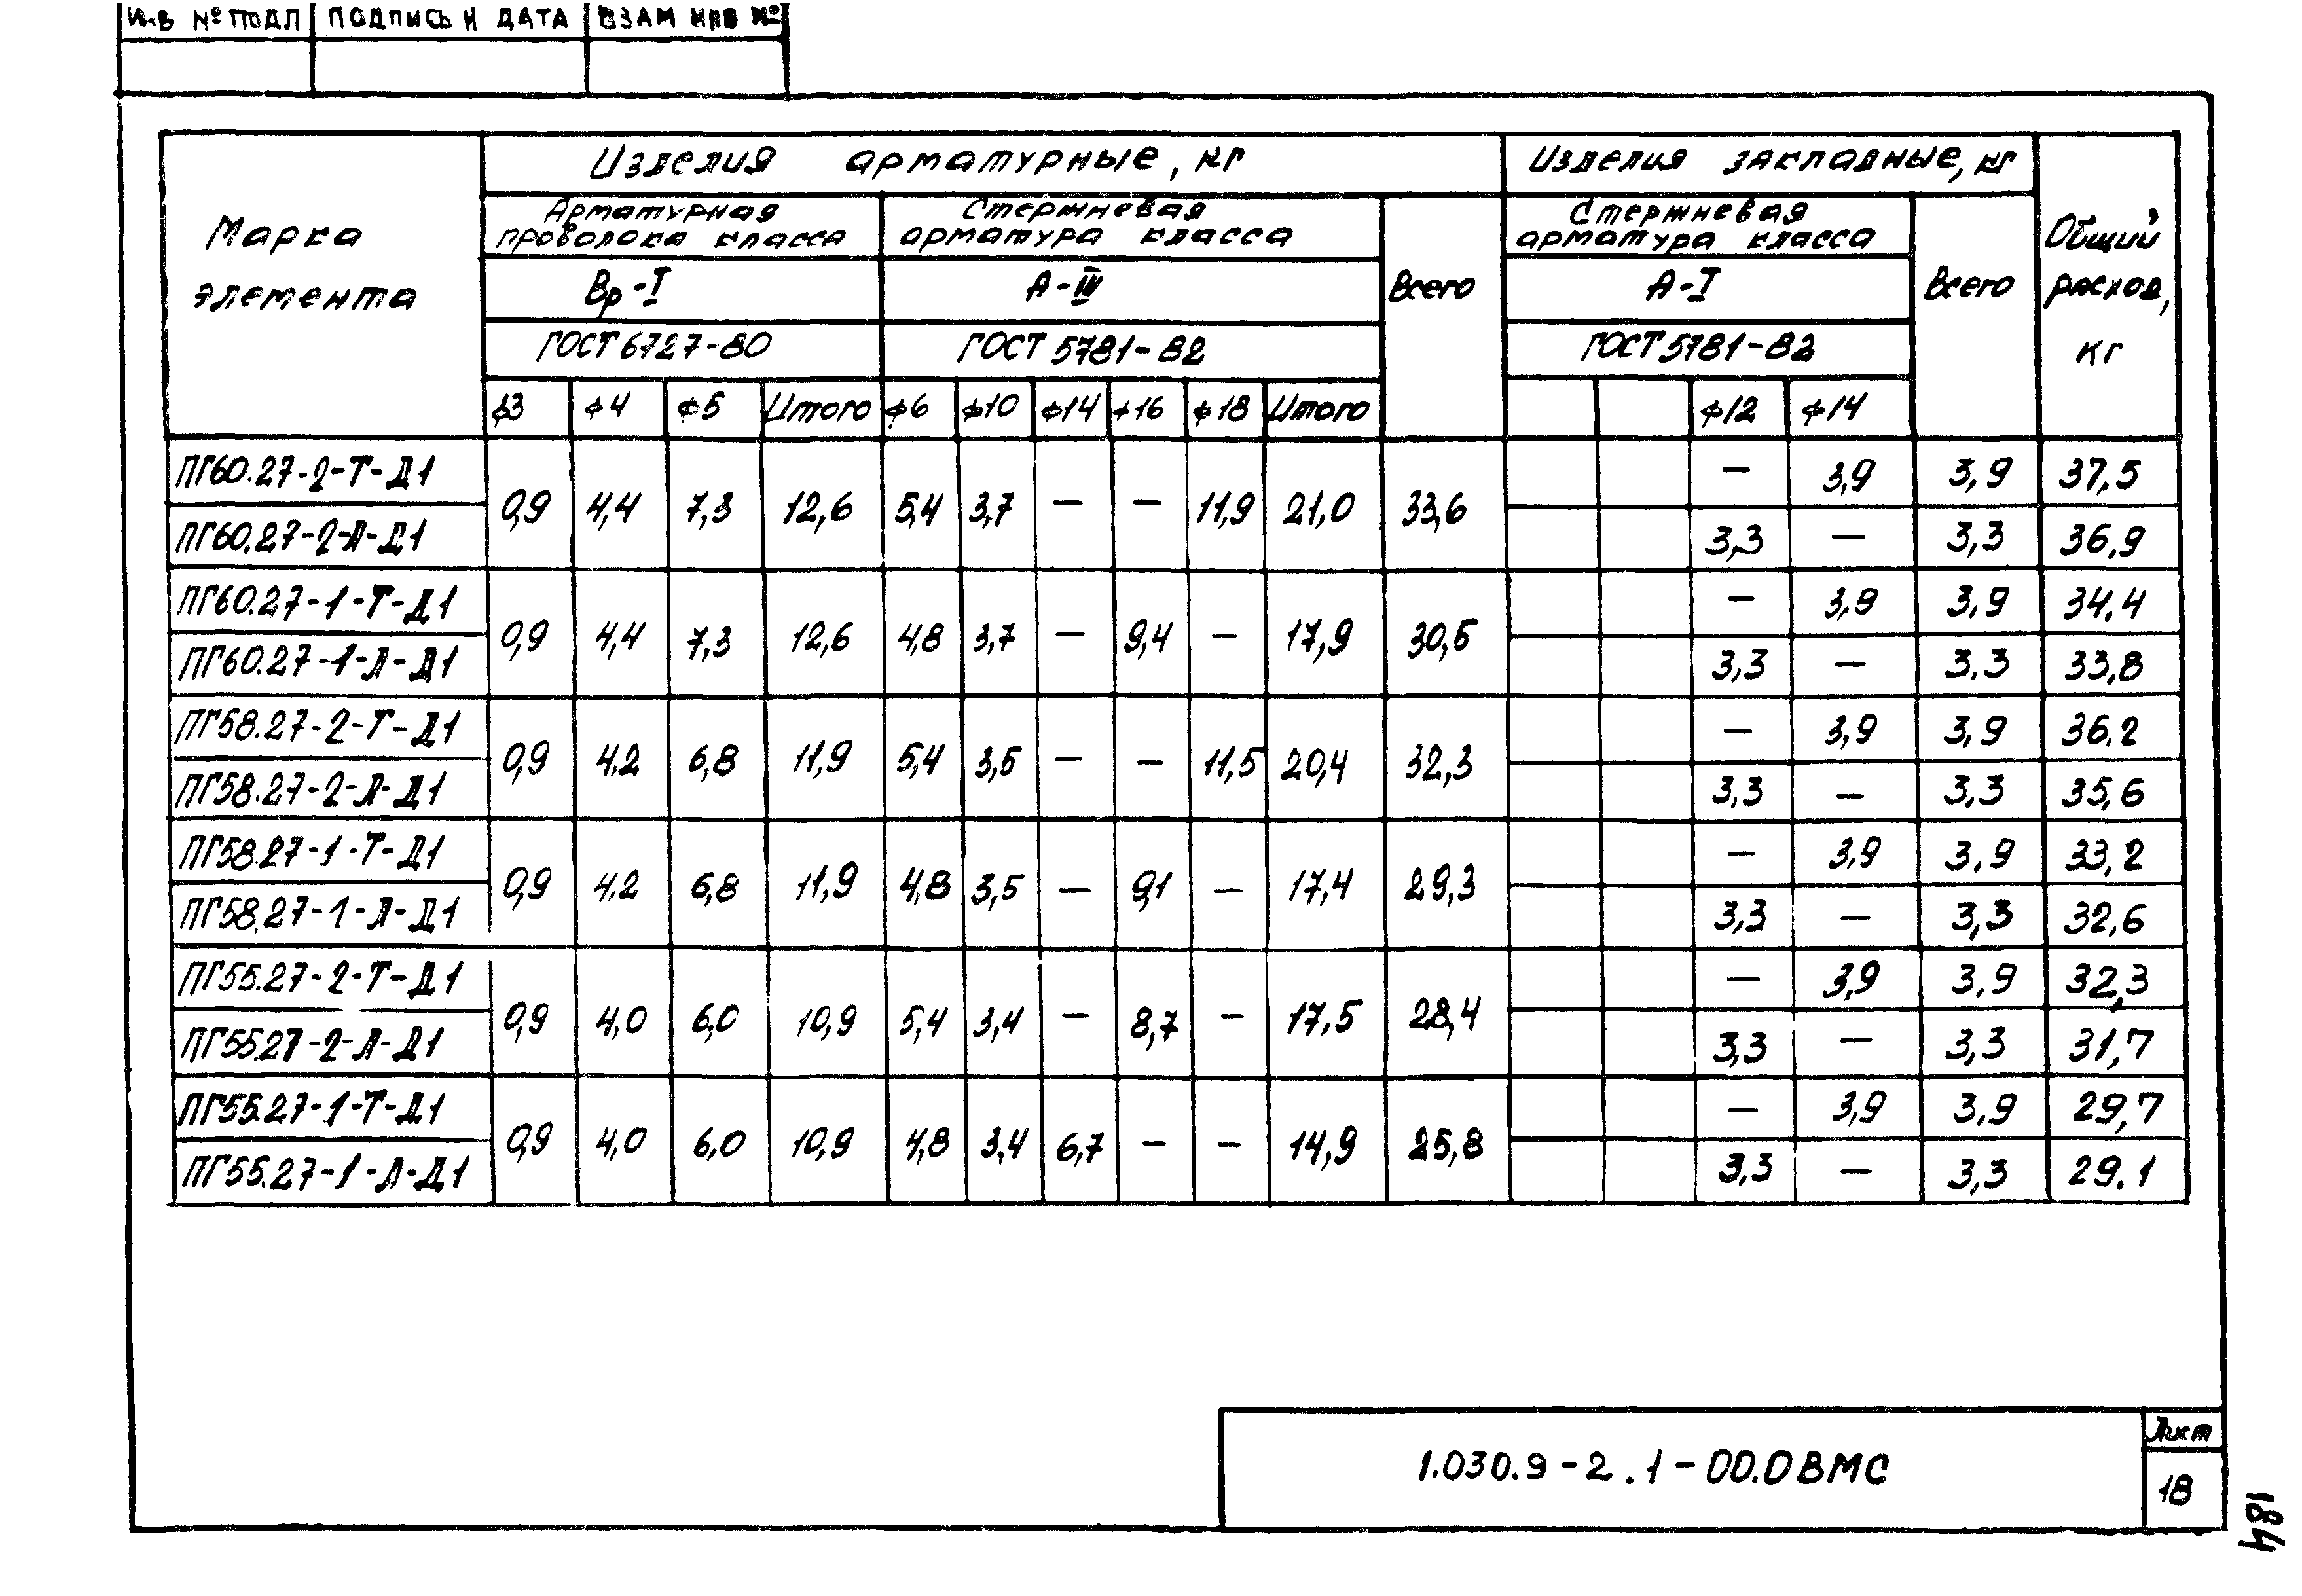 Инв № подл ПОДПИСЬ И ДАТА ВЗАМ ИНВ №
Марка
элемента
Изделия арматурные, кг
Изделия закладные, кг
Общий
расход,
кг
Арматурная
проволока класса
Стержневая
арматура класса
Всего
Стержневая
арматура класса
Всего
Вр-I
А-III
А-I
ГОСТ 6727-80
ГОСТ 5781-82
ГОСТ 5781-82
ф3 ф4 ф5 Итого ф6 ф10 ф14 ф16 ф18 Итого ф12 ф14
ПГ60.27-2-Т-Д1 0,9 4,4 7,3 12,6 5,4 3,7 — — 11,9 21,0 33,6 — 3,9 3,9 37,5
ПГ60.27-2-Л-Д1 3,3 — 3,3 36,9
ПГ60.27-1-Т-Д1 0,9 4,4 7,3 12,6 4,8 3,7 — 9,4 — 17,9 30,5 — 3,9 3,9 34,4
ПГ60.27-1-Л-Д1 3,3 — 3,3 33,8
ПГ58.27-2-Т-Д1 0,9 4,2 6,8 11,9 5,4 3,5 — — 11,5 20,4 32,3 — 3,9 3,9 36,2
ПГ58.27-2-Л-Д1 3,3 — 3,3 35,6
ПГ58.27-1-Т-Д1 0,9 4,2 6,8 11,9 4,8 3,5 — 9,1 — 17,4 29,3 — 3,9 3,9 33,2
ПГ58.27-1-Л-Д1 3,3 — 3,3 32,6
ПГ55.27-2-Т-Д1 0,9 4,0 6,0 10,9 5,4 3,4 — 8,7 — 17,5 28,4 — 3,9 3,9 32,3
ПГ55.27-2-Л-Д1 3,3 — 3,3 31,7
ПГ55.27-1-Т-Д1 0,9 4,0 6,0 10,9 4,8 3,4 6,7 — — 14,9 25,8 — 3,9 3,9 29,7
ПГ55.27-1-Л-Д1 3,3 — 3,3 29.1
1.030.9-2.1-00.0ВМС
Лист
18
184